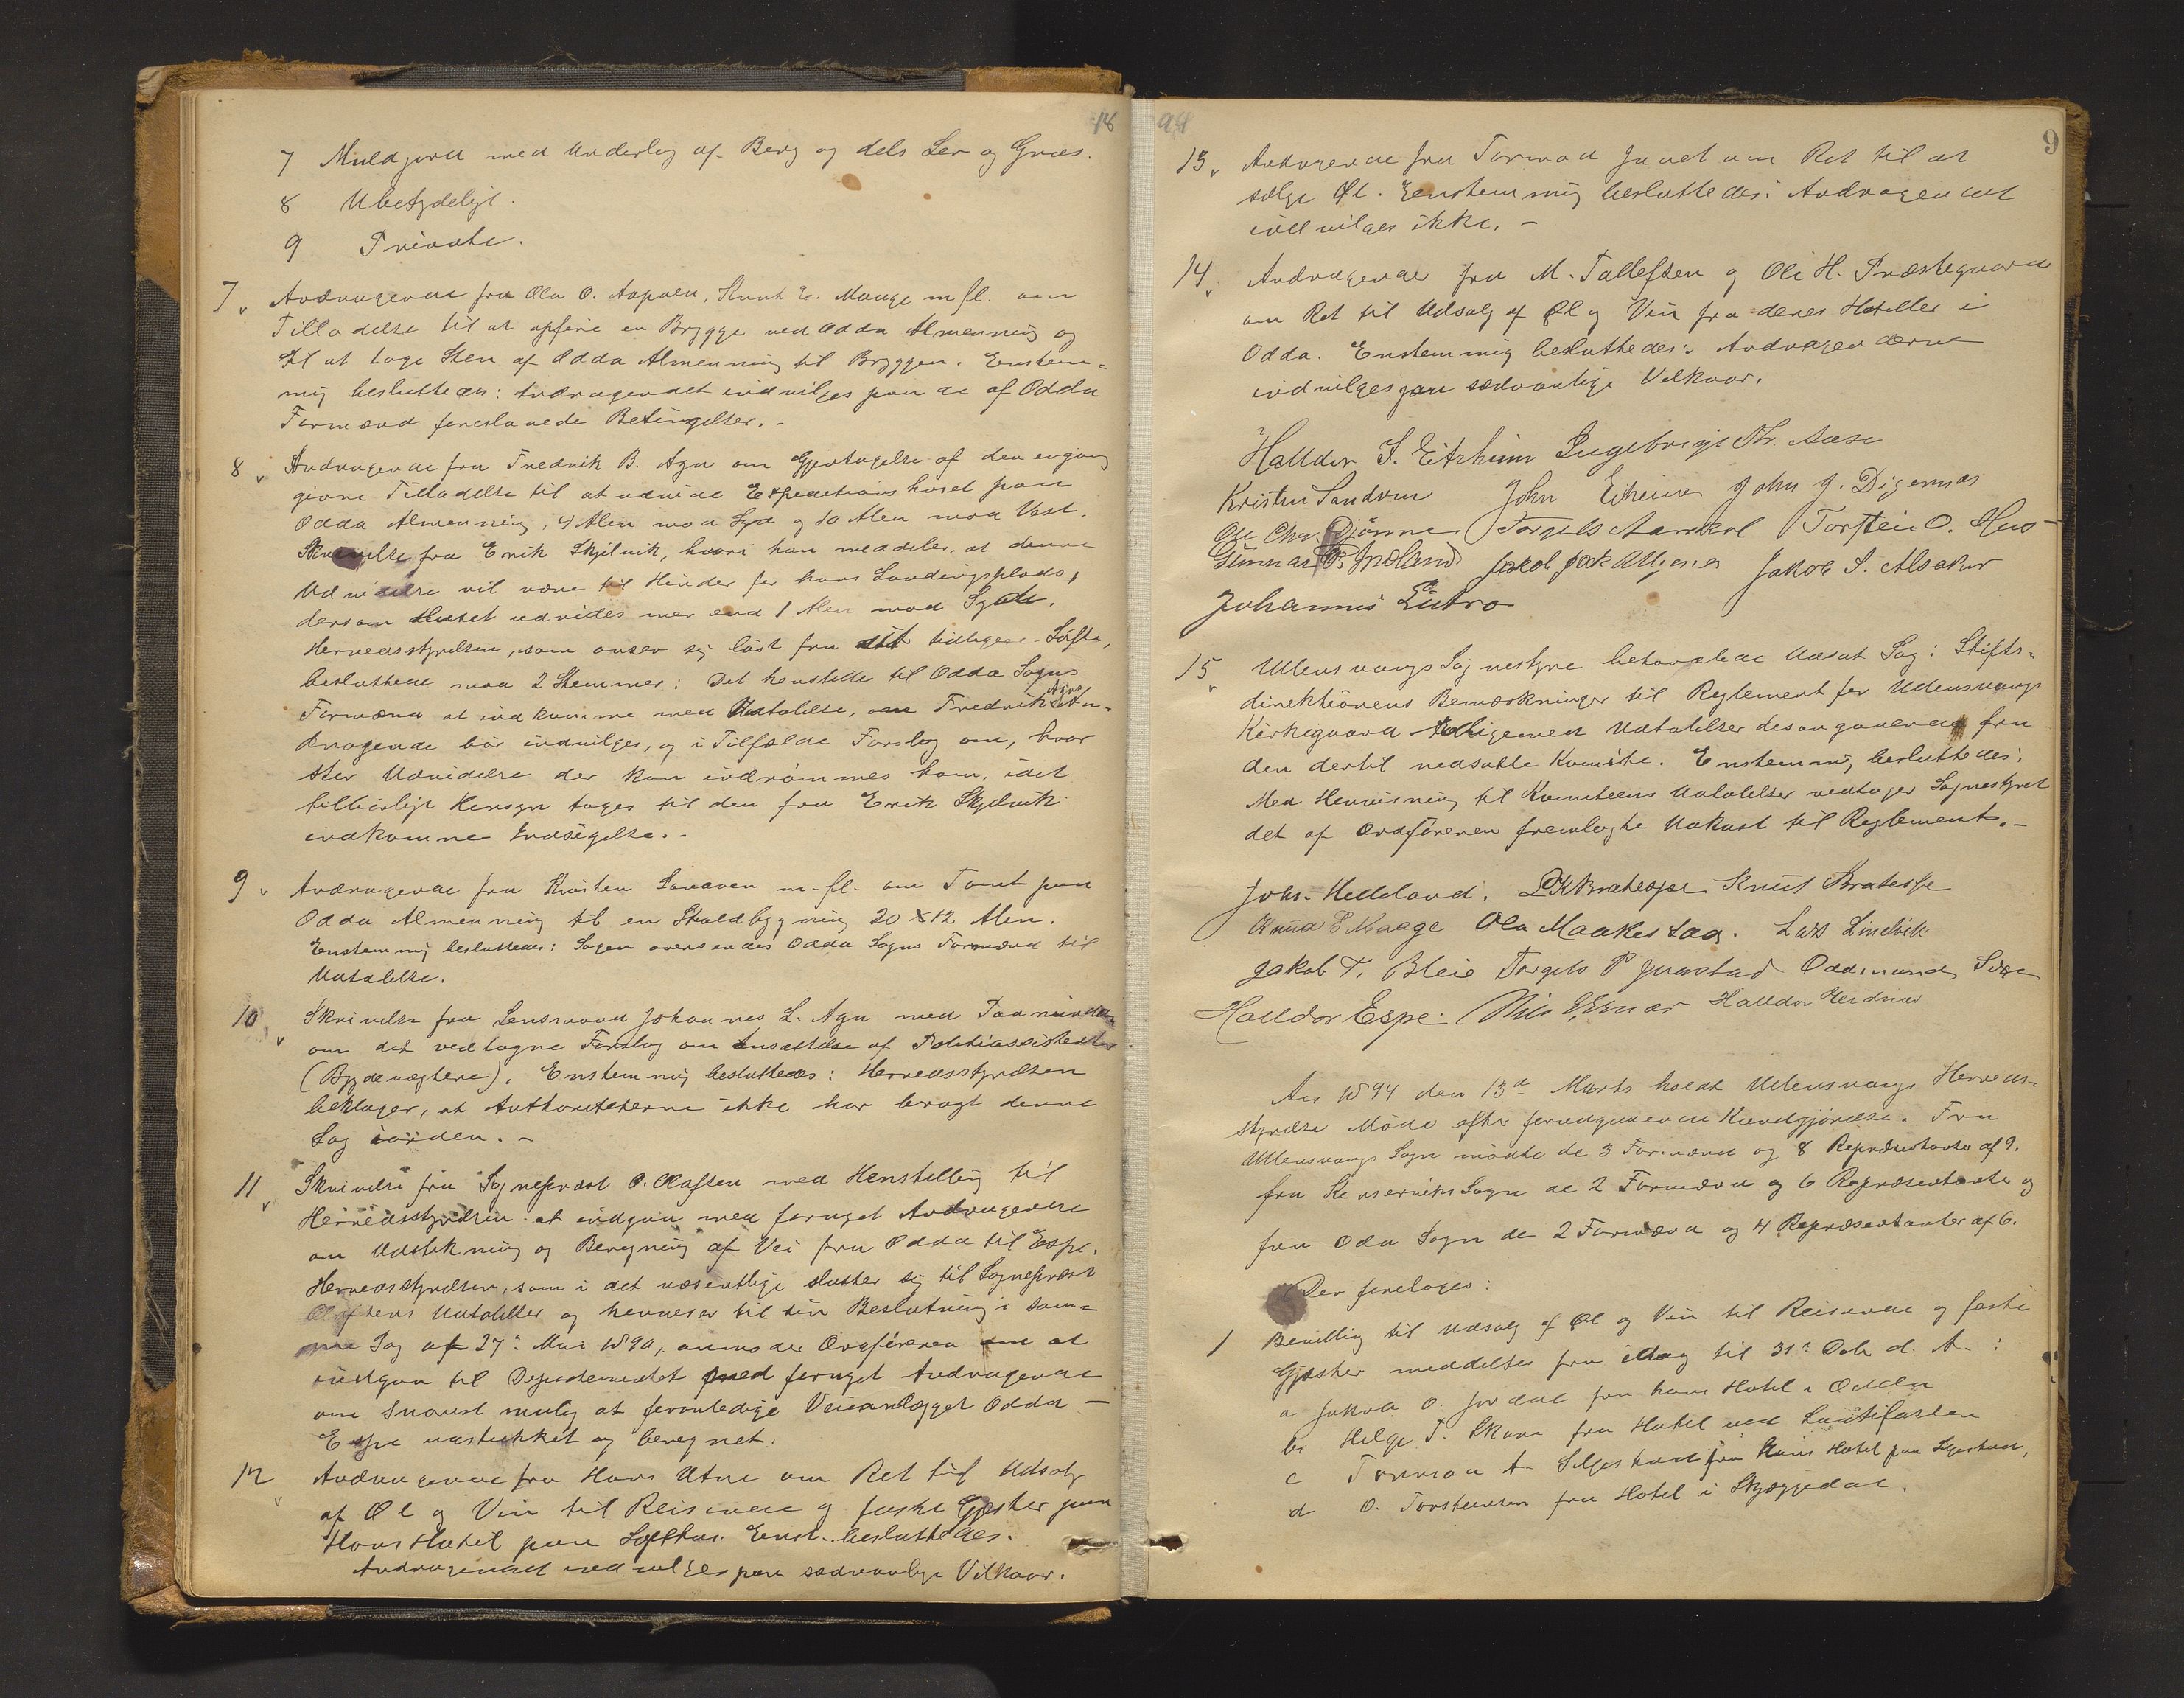 18
7 Muldjord med Underlag af Berg og dels Ler og Grus.
8 Ubetydeligt.
9 Private.
7, Andragende fra Ola O. Aapaalen, Knut E. Mauge m fl. om
Tilladelse til at opføre en Brygge ved Odda Almenning og
til at tage Sten af Odda Almenning til Bryggen. Enstem-
mig besluttedes: Andragendet indvilges paa de af Odda
Formænd foreslaaede Betingelser. -
8, Andragende fra Fredrik B. Aga om Gjentagelse af den engang
givne Tilladelse til at udvide Expeditionshuset paa
Odda Almenning, 4 Alen mod Syd og 10 Alen mod Vest.
Skrivelse fra Erik Skjelvik, hvori han meddeler, at denne
Udvidelse vil være til Hinder for hans Landingsplads,
dersom Huset udvides mer end 1 Alen mod Syd.
Herredsstyrelsen, som anser sig løst fra sit tidligere Løfte,
besluttede mod 2 Stemmer: Det henstilles til Odda Sogns
Formænd at indkomme med Udtalelse, om Fredrik Agas An-
dragende bør indvilges, og i Tilfælde Forslag om, hvor
stor Udvidelse der kan indrømmes ham, idet
tilbørligt Hensyn tages til den fra Erik Skjelvik
indkomne Indsigelse. -
9, Andragende fra Kristen Sandven m. fl. om Tomt paa
Odda Almenning til en Staldbygning 20 x 12 Alen.
Enstemmig besluttedes: Sagen oversendes Odda Sogns Formænd til
Udtalelse.
10, Skrivelse fra Lensmand Johannes L. Aga med Paamindelse
om det vedtagne Forslag om Ansættelse af Politiassistenter
(Bygdevægtere). Enstemmig besluttedes: Herredsstyrelsen
beklager, at Authoriteterne ikke har bragt denne
Sag iorden. -
11, Skrivelse fra Sogneprest O. Olafsen med Henstilling til
Herredsstyrelsen at indgaa med fornyet Andragende
om Udstikning og Beregning af Vei fra Odda til Espe.
Herredsstyrelsen, som i det væsentlige slutter sig til Sogneprest
Olafsens Udtalelser og henviser til sin Beslutning i sam-
me Sag af 27de Mai 1890, anmoder Ordføreren om at
indgaa til Departementet med fornyet Andragende
om snarest mulig at foranledige Veianlægget Odda -
Espe udstukket og beregnet.
12, Andragende fra Hans Utne om Ret til Udsalg
af Øl og Vin til Reisende og faste Gjester paa
Hans Hotel paa Lofthus. Enst. besluttedes:
Andragendet indvilges paa sædvanlige Vilkaar.
94
9
13, Andragende fra Tormod Jaastad om Ret til at
sælge Øl. Enstemmig besluttedes: Andragendet
indvilges ikke. -
14, Andragende fra M. Tollefsen og Ole H. Præstegaard
om Ret til Udsalg af Øl og Vin fra deres Hoteller i
Odda. Enstemmig besluttedes: Andragenderne
indvilges paa sædvanlige Vilkaar.
Halldor S. Eitrheim Ingebrigt Th. Aase
Kristen Sandven John Eitheim John J. Digernæs
Ole Chr. Djønne Torgels Aarekol Torstein O. Hus
Gunnar P. Freland Jakob Jak Alsaker Jakob S. Alsaker
Johannes Lutro
15, Ullensvangs Sognestyre behandlede Udsat Sag: Stifts-
direktionens Bemærkninger til Reglement for Ullensvangs
Kirkegaard tilligemed Udtalelser desangaaende fra
den dertil nedsatte Komite. Enstemmig besluttedes:
Med Henvisning til Komiteens Udtalelser vedtager Sognestyret
det af Ordføreren fremlagte Udkast til Reglement. -
Johs. Helleland. LK Bratespe Knut Bratespe
Knud E Mauge Ola Maakestad. Lars Lindvik
Jakob T. Bleie Torgels P Jaastad Oddmund Sexe
Halldor Espe. Nils Ernæs Halldor Heidnes
Aar 1894 den 13de Marts holdt Ullensvangs Herreds-
styrelse Møde efter foregaaende Kundgjørelse. Fra
Ullensvangs Sogn mødte de 3 Formænd og 8 Repræsentanter af 9.
fra Kinserviks Sogn de 2 Formænd og 6 Repræsentanter og
fra Odda Sogn de 2 Formænd og 4 Repræsentanter af 6.
Der foretoges:
1 Bevilling til Udsalg af Øl og Vin til Reisende og faste
Gjæster meddeltes fra idag til 31te Decb d. A. :
a Jakob O. Jordal fra hans Hotel i Odda
b Helge T. Skare fra Hotel ved Laatefossen
c Tormod A. Seljestad fra hans Hotel paa Seljestad,
d O. Torsteinsen fra Hotel i Skjæggedal.